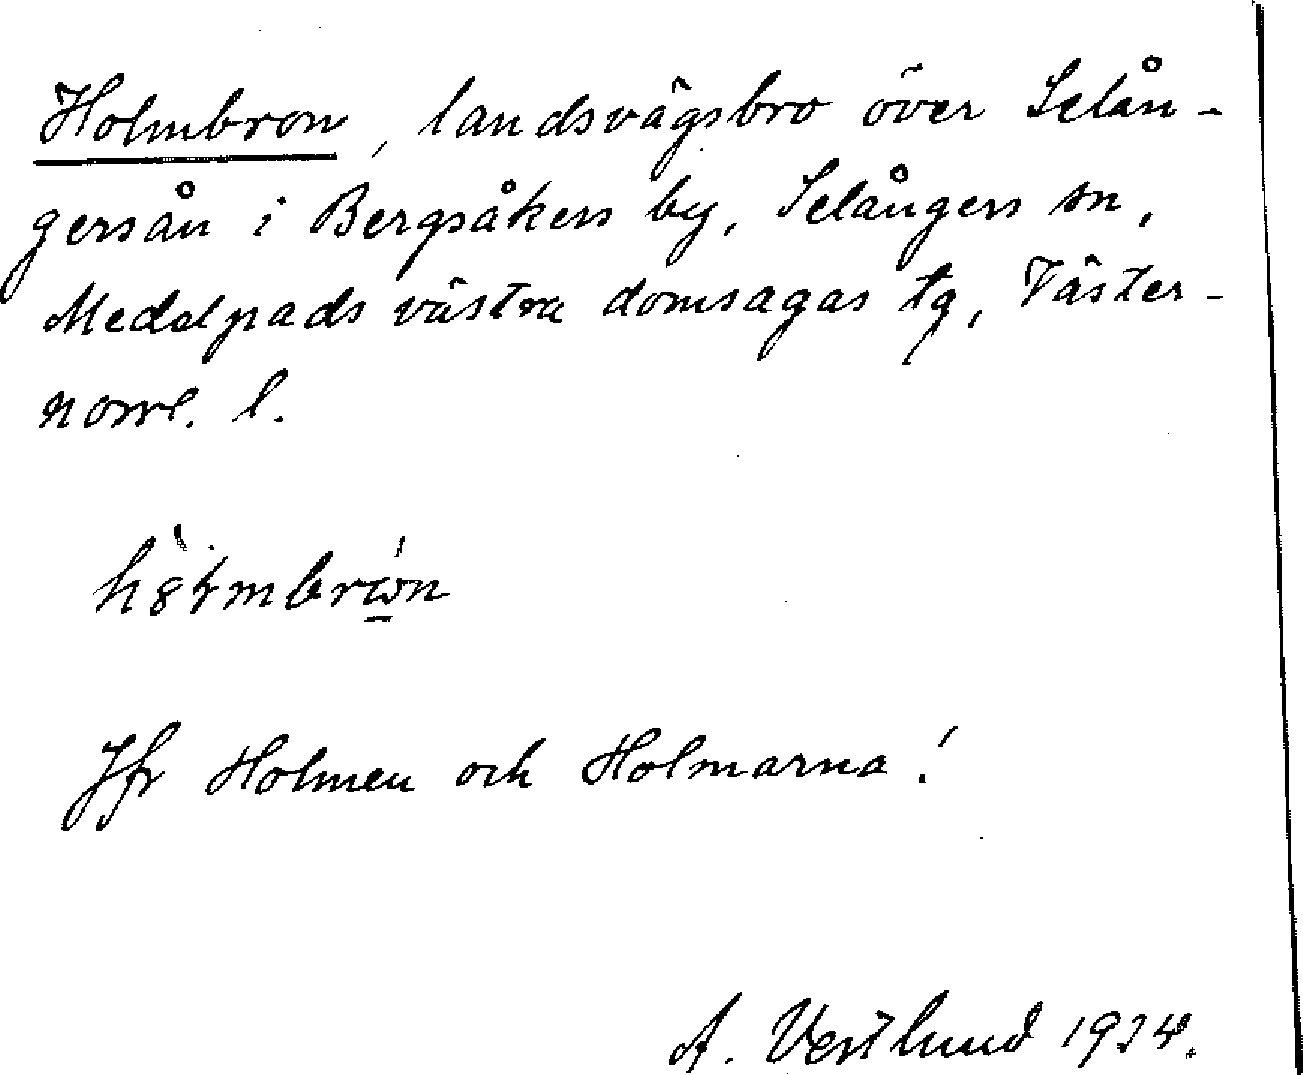 Holmbron, landsvägsbro över Selån-
gersån i Bergsåkers by, Selångers sn,
Medelpads västra domsagas tg, Väster-
norrl. l.
Jfr Holmen och Holmarna!
A. Vestlund 1924.